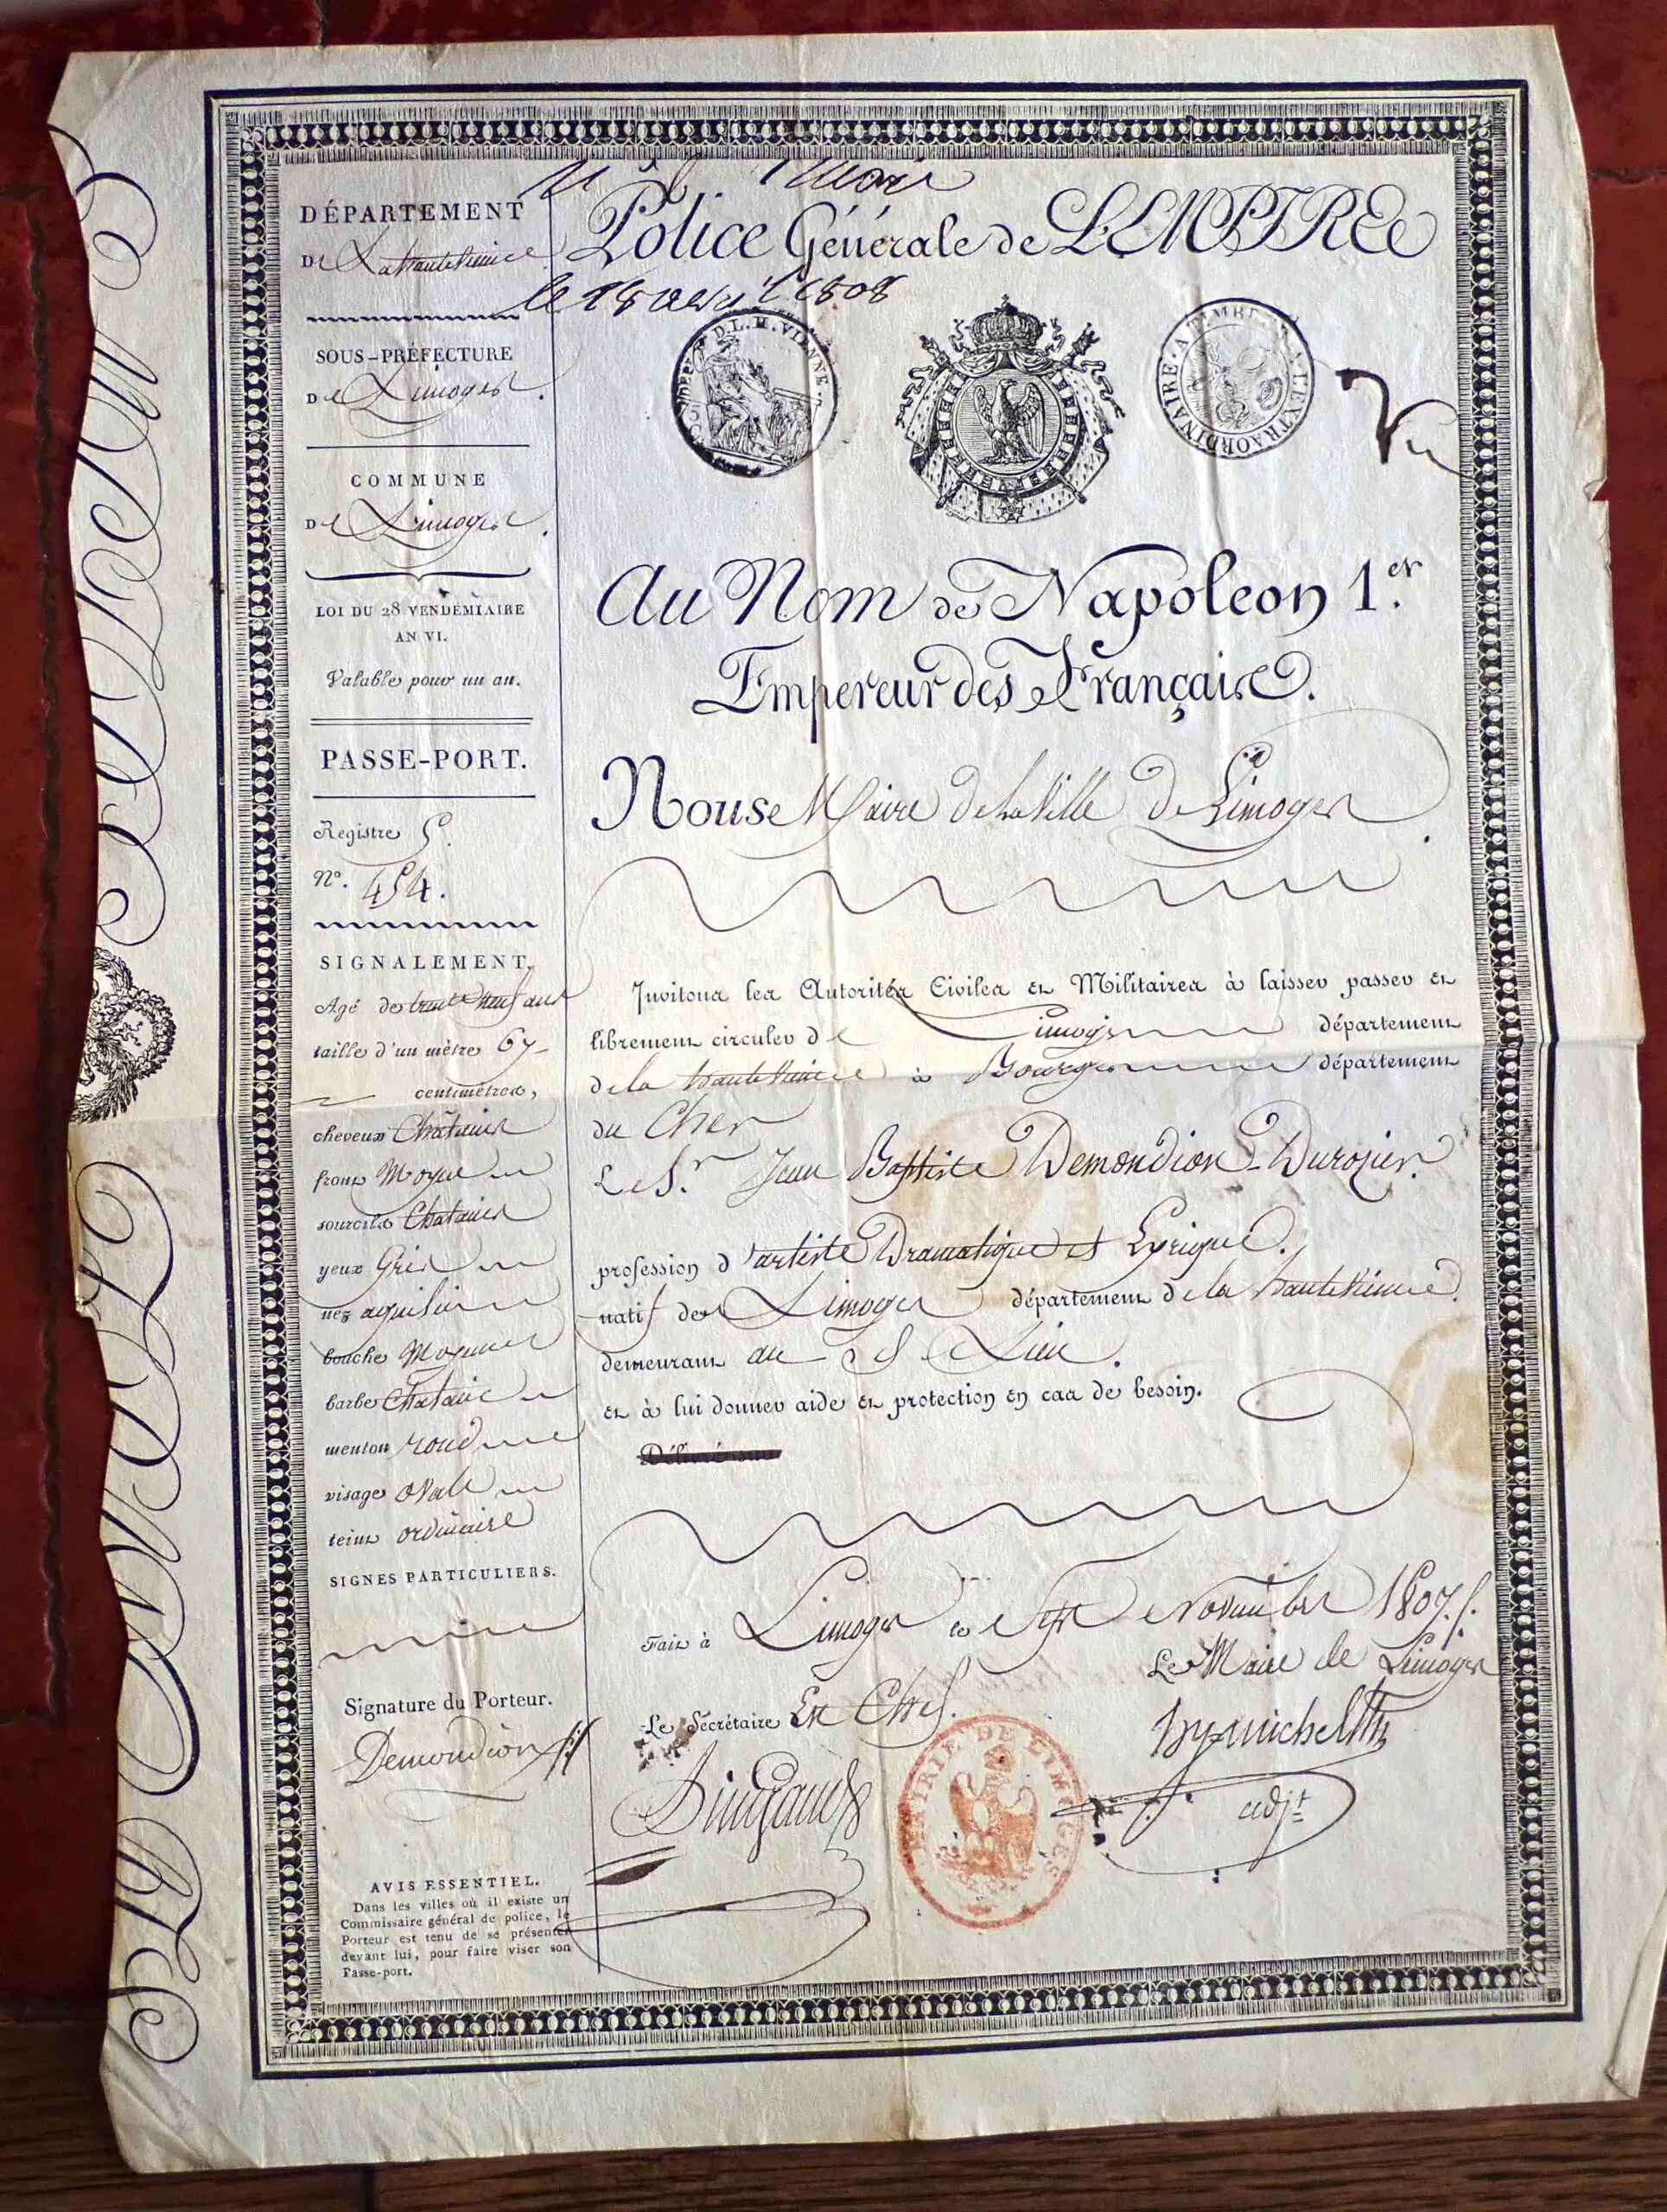 DÉPARTEMENT
De La haute Vienne
SOUS-PRÉFECTURE
De Limoges.
COMMUNE
De Limoges.
LOI DU 28 VENDÉMIAIRE
AN VI.
Valable pour un an.
PASSE-PORT.
Registre 5.
N°. 454.
SIGNALEMENT.
Agé de trente neuf ans
taille d'un mètre 67
centimètres,
cheveux Chatains
front Moyen
sourcils Chatains
yeux Gris
nez aquilin
bouche Moyenne
barbe Chataine
menton rond
visage ovale
teint ordinaire
SIGNES PARTICULIERS.
Signature du Porteur.
Demondion
AVIS ESSENTIEL.
Dans les villes où il existe un
Commissaire général de police, le
Porteur est tenu de se présenter
devant lui, pour faire viser son
Passe-port.
Police Générale de L'EMPIRE
le 18 avril 1808
D.L.H. VIENNE
A TIMBRE A L'EXTRAORDINAIRE
Vu
Au Nom de Napoleon 1.er
Empereur des Français.
Nous Maire de la Ville de Limoges
Invitons les Autorités Civiles et Militaires à laisser passer et
librement circuler de Limoges département
de la haute Vienne à Bourges département
du Cher
Le Sr. Jean Baptiste Demondion-Durozier
profession d'artiste Dramatique et Lyrique.
natif de Limoges département de la haute Vienne
demeurant au dt Lieu.
et à lui donner aide et protection en cas de besoin.
Fait à Limoges le Sept Novembre 1807.
Le Maire de Limoges
Le Secrétaire En Chef.
adjt
MAIRIE DE LIMOGES